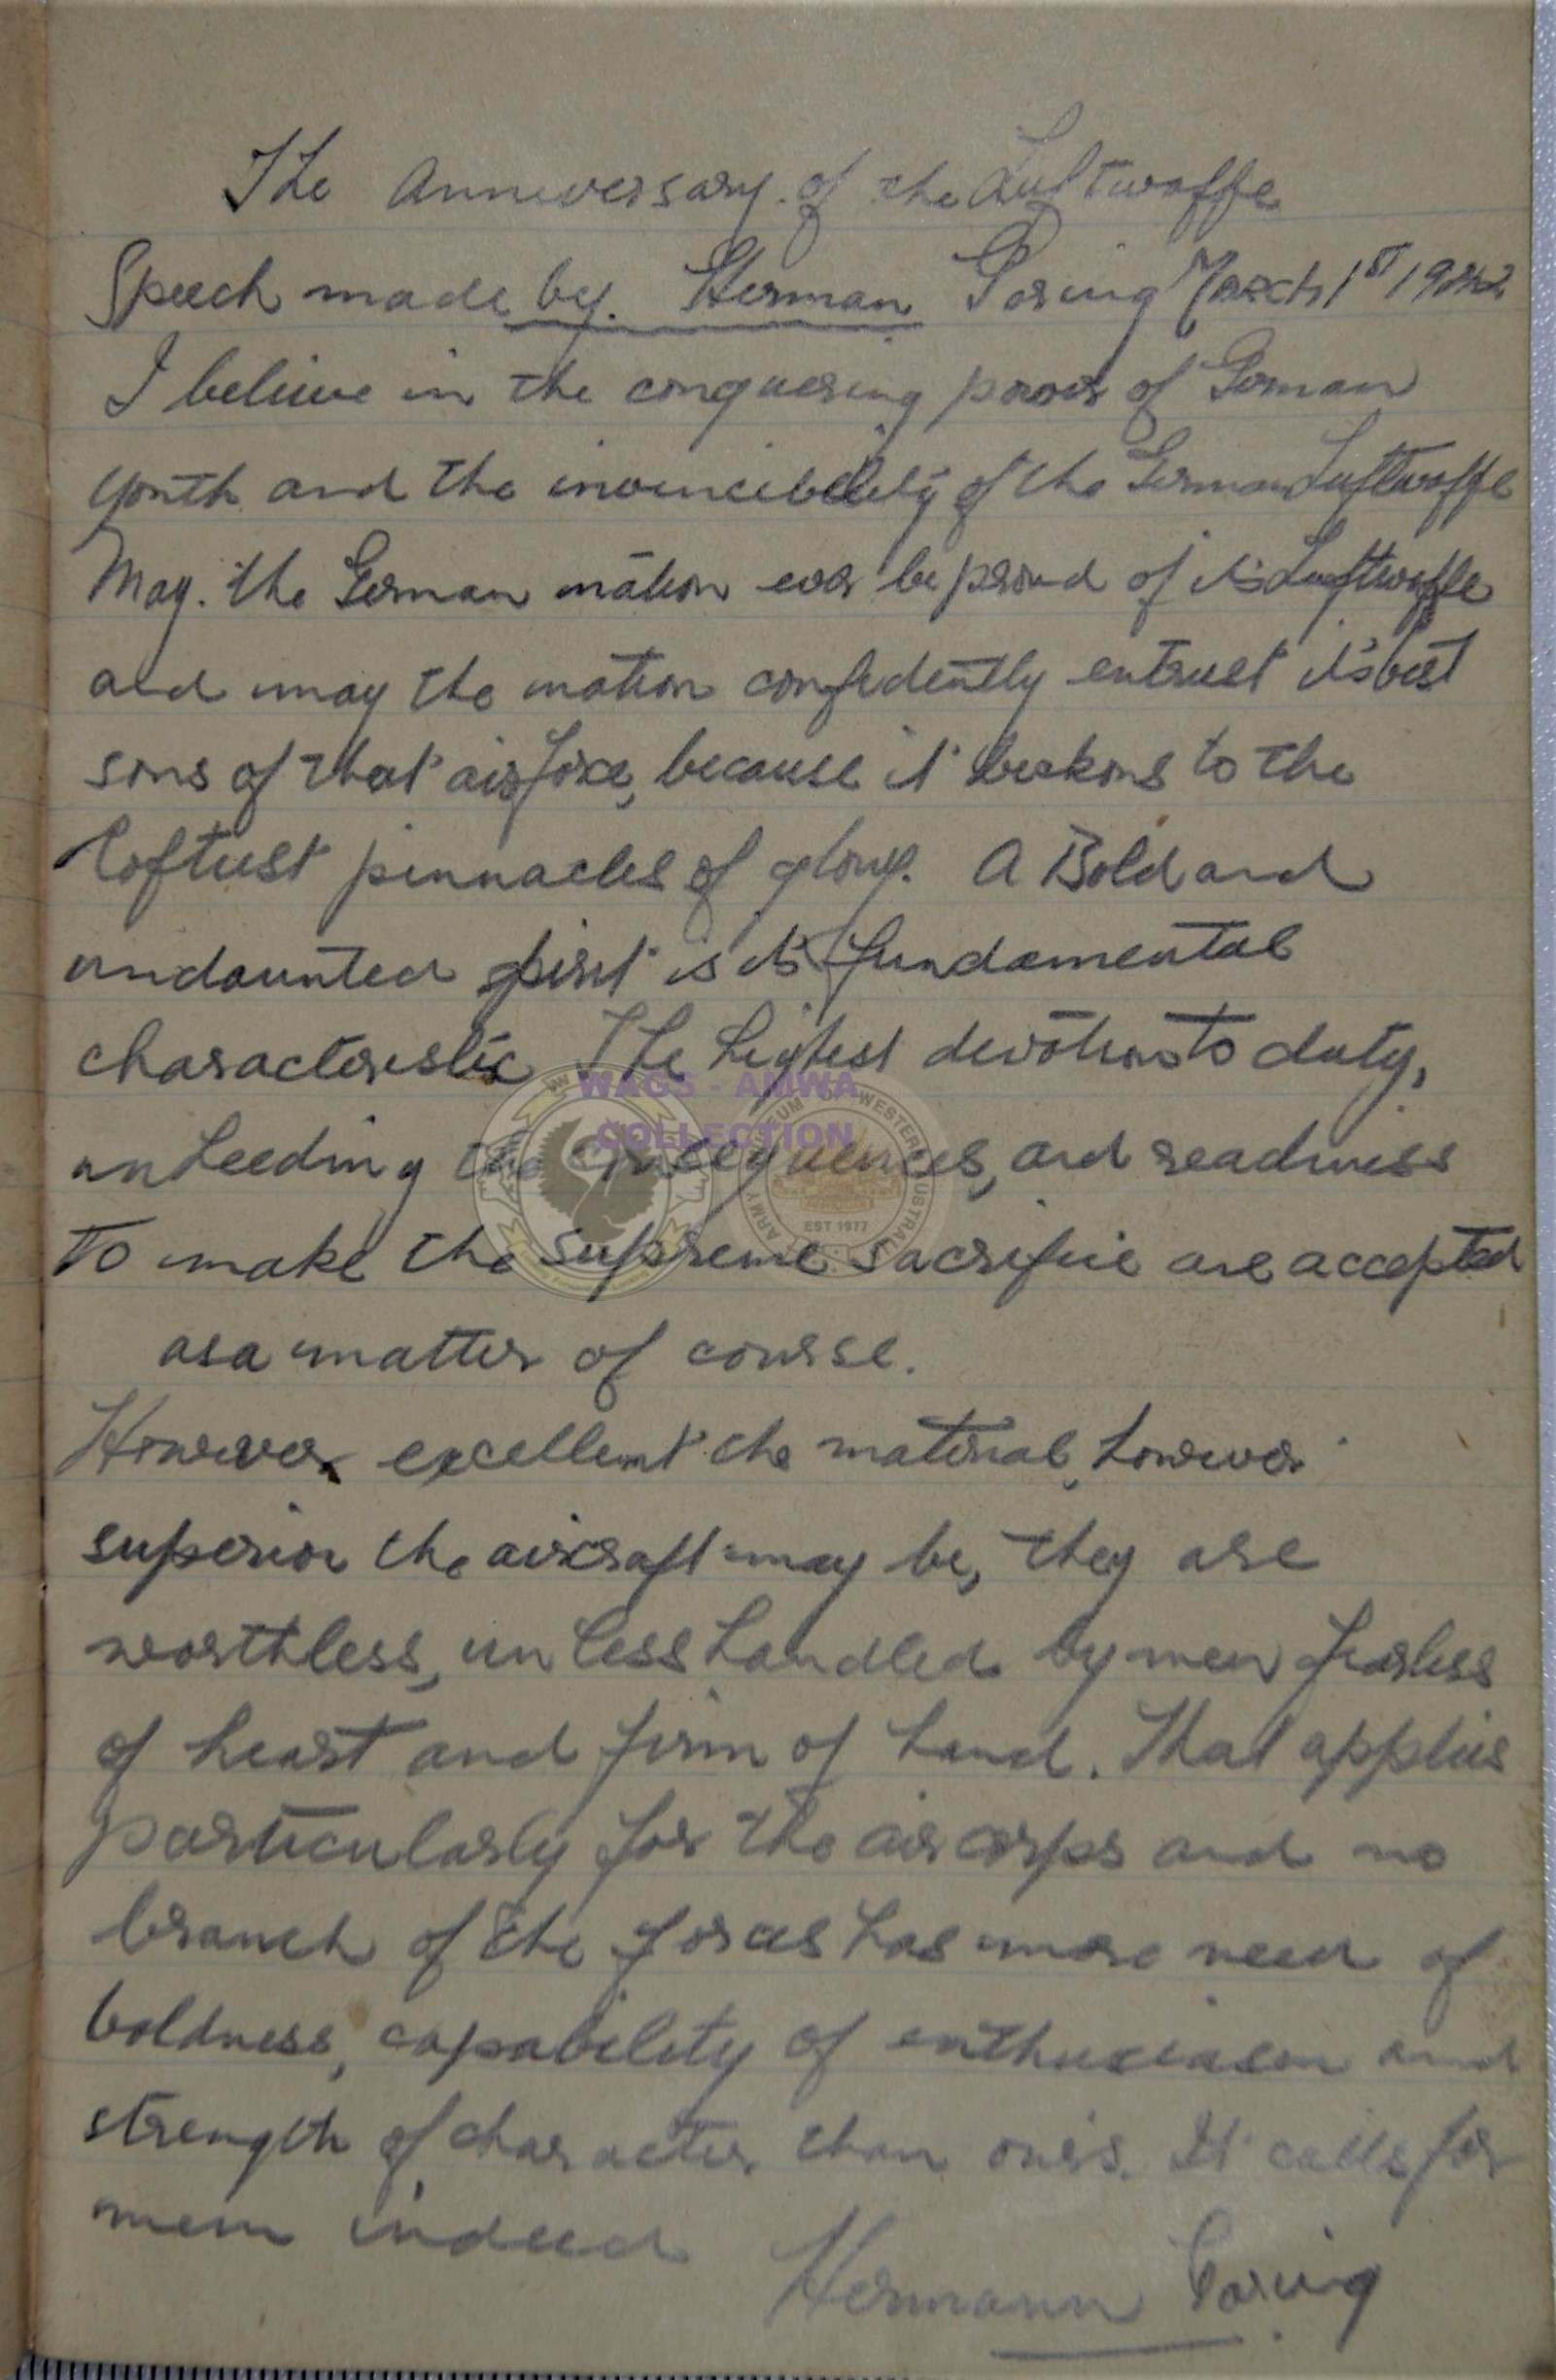 The Anniversary. of the Luftwaffe
Speech made by. Herman Goring March 1ST 1942
I believe in the conquering power of German
youth and the invincibility of the German Luftwaffe
May. the German nation ever be proud of it's Luftwaffe
and may the nation confidently entrust it's best
sons of that airforce, because it beckons to the
loftiest pinnacles of glory. A Bold and
undaunted spirit is it's fundamental
characteristic The highest devotion to duty,
unheeding the consequences, and readiness
to make the supreme sacrifice are accepted
as a matter of course.
However excellent the material, however
superior the aircraft may be, they are
worthless, unless handled by men fearless
of heart and firm of hand. That applies
particularly for the air corps and no
branch of the forces has more need of
boldness, capability of enthusiasm and
strength of character than ours. It calls for
men indeed
Hermann Goring
WAGS - AMWA
COLLECTION
ARMY MUSEUM OF WESTERN AUSTRALIA
EST 1977